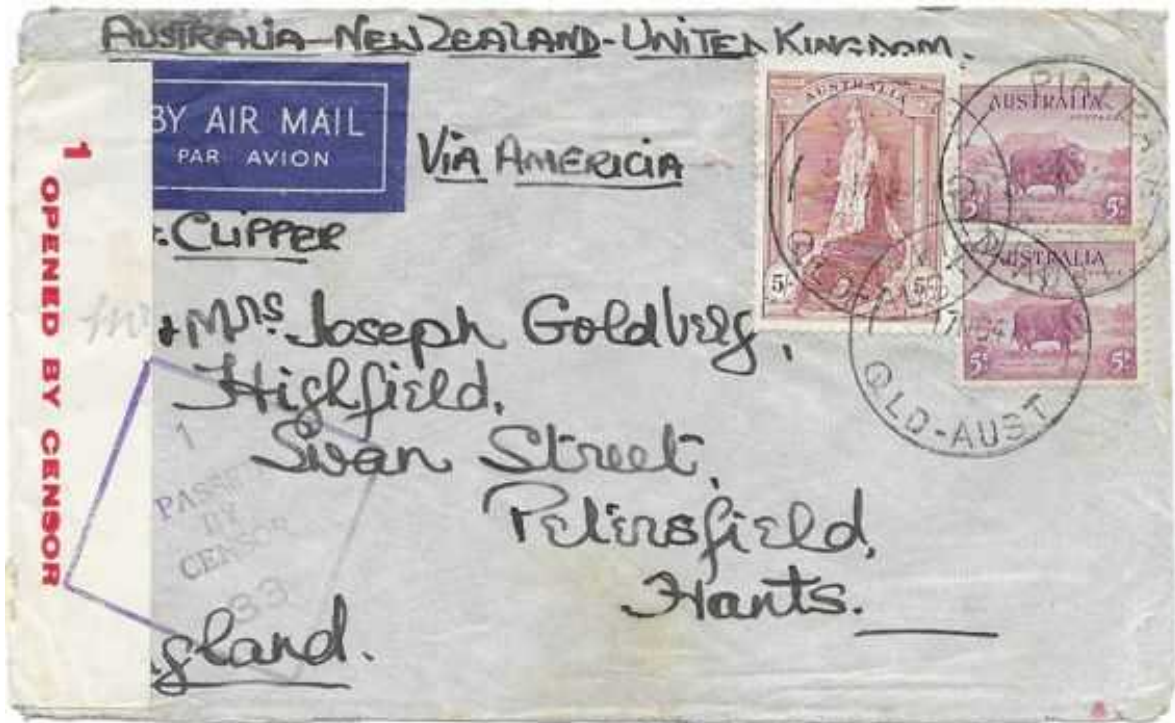 AUSTRALIA-NEW ZEALAND-UNITED KINGDOM.
BY AIR MAIL
PAR AVION
VIA AMERICIA
CLIPPER
1 OPENED BY CENSOR
+ Mrs. Joseph Goldberg,
Highfield,
Swan Street,
Petersfield,
Hants.
gland.
1
PASSED
BY
CENSOR
33
AUSTRALIA
5/- 5/-
AUSTRALIA
POSTAGE
5D 5D
AUSTRALIA
POSTAGE
5D 5D
QLD-AUST
QLD-AUST